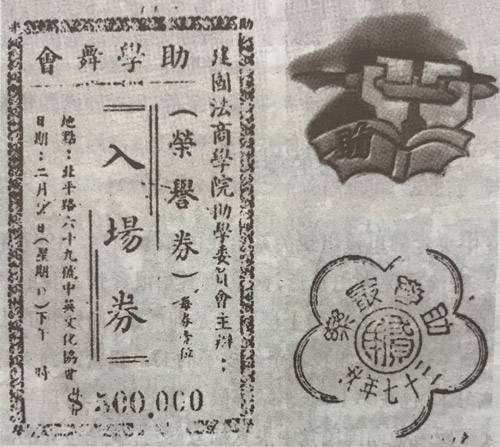 助學舞會
建國法商學院助學委員會主辦：
(榮譽券) 每券壹位
入場券
地點：北平路六十九號中英文化協會
日期：二月 日(星期日)下午 時
$ 500.000
助
助
助學叢樂
三十七年